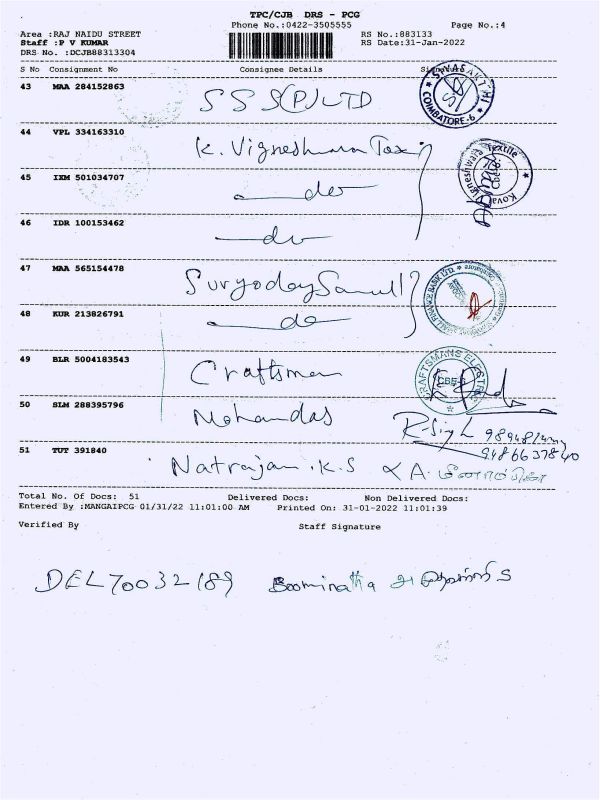 TPC/CJB DRS - PCG
Phone No.:0422-3505555 Page No.:4
Area :RAJ NAIDU STREET RS No.:883133
Staff :P V KUMAR RS Date:31-Jan-2022
DRS No. :DCJB88313304
S No Consignment No Consignee Details Signature
43 MAA 284152863 S S S(P)LTD
SIVASAKTHI COIMBATORE-6
44 VPL 334163310 K. Vigneshwara Tex
Vigneshwara Textile Kovai
45 IXM 501034707 do
46 IDR 100153462 do
47 MAA 565154478 Suryoday Small
SMALL FINANCE BANK LTD
48 KUR 213826791 do
49 BLR 5004183543 Craftsman
CRAFTSMANS ELECTRI CBE-6
50 SLM 288395796 Mohandas
51 TUT 391840 Natrajan.K.S & A.
9486637840
Total No. Of Docs: 51 Delivered Docs: Non Delivered Docs:
Entered By :MANGAIPCG 01/31/22 11:01:00 AM Printed On: 31-01-2022 11:01:39
Verified By Staff Signature
DEL70032189